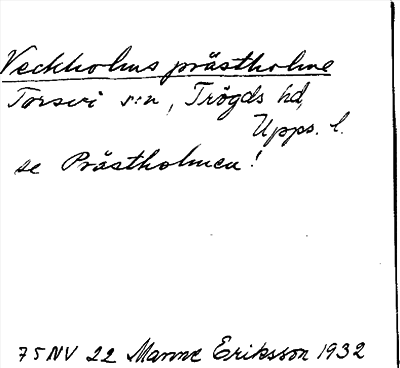 Veckholms prästholme
Torsvi s:n, Trögds hd,
Upps. l.
se Prästholmen!
75 NV 22 Manne Eriksson 1932